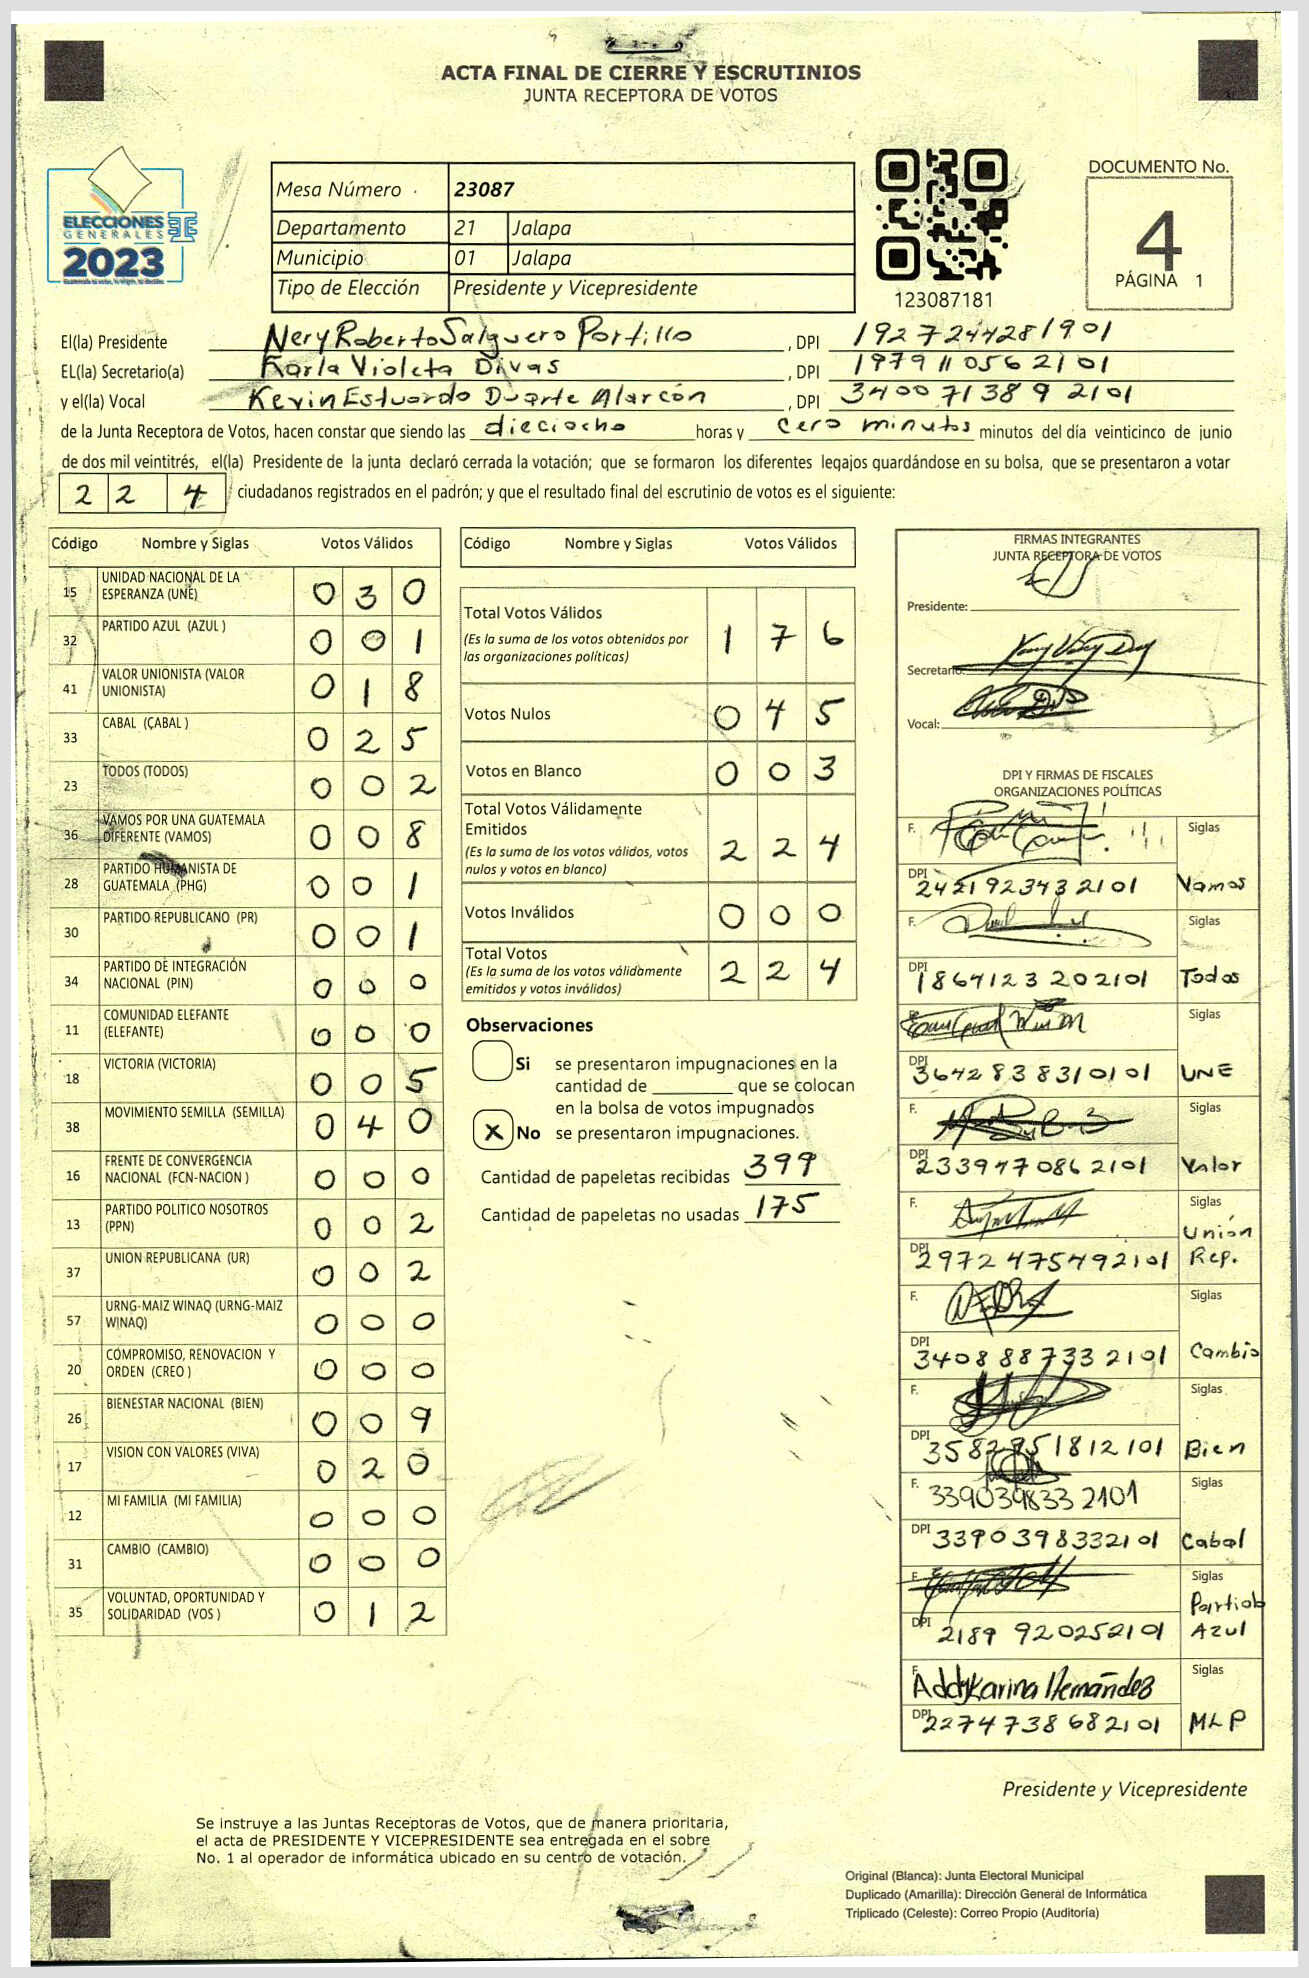 ACTA FINAL DE CIERRE Y ESCRUTINIOS
JUNTA RECEPTORA DE VOTOS
ELECCIONES
GENERALES
2023
Mesa Número 23087
Departamento 21 Jalapa
Municipio 01 Jalapa
Tipo de Elección Presidente y Vicepresidente
123087181
DOCUMENTO No.
4
PÁGINA 1
El(la) Presidente Nery Roberto Salguero Portillo , DPI 1927244281901
EL(la) Secretario(a) Karla Violeta Divas , DPI 1979110562101
y el(la) Vocal Kevin Estuardo Duarte Alarcón , DPI 3400713892101
de la Junta Receptora de Votos, hacen constar que siendo las dieciocho horas y cero minutos minutos del día veinticinco de junio
de dos mil veintitrés, el(la) Presidente de la junta declaró cerrada la votación; que se formaron los diferentes legajos guardándose en su bolsa, que se presentaron a votar
2 2 4 ciudadanos registrados en el padrón; y que el resultado final del escrutinio de votos es el siguiente:
Código Nombre y Siglas Votos Válidos
15 UNIDAD NACIONAL DE LA
ESPERANZA (UNE) 0 3 0
32 PARTIDO AZUL (AZUL ) 0 0 1
41 VALOR UNIONISTA (VALOR
UNIONISTA) 0 1 8
33 CABAL (CABAL ) 0 2 5
23 TODOS (TODOS) 0 0 2
36 VAMOS POR UNA GUATEMALA
DIFERENTE (VAMOS) 0 0 8
28 PARTIDO HUMANISTA DE
GUATEMALA (PHG) 0 0 1
30 PARTIDO REPUBLICANO (PR) 0 0 1
34 PARTIDO DE INTEGRACIÓN
NACIONAL (PIN) 0 0 0
11 COMUNIDAD ELEFANTE
(ELEFANTE) 0 0 0
18 VICTORIA (VICTORIA) 0 0 5
38 MOVIMIENTO SEMILLA (SEMILLA) 0 4 0
16 FRENTE DE CONVERGENCIA
NACIONAL (FCN-NACION ) 0 0 0
13 PARTIDO POLITICO NOSOTROS
(PPN) 0 0 2
37 UNION REPUBLICANA (UR) 0 0 2
57 URNG-MAIZ WINAQ (URNG-MAIZ
WINAQ) 0 0 0
20 COMPROMISO, RENOVACION Y
ORDEN (CREO ) 0 0 0
26 BIENESTAR NACIONAL (BIEN) 0 0 9
17 VISION CON VALORES (VIVA) 0 2 0
12 MI FAMILIA (MI FAMILIA) 0 0 0
31 CAMBIO (CAMBIO) 0 0 0
35 VOLUNTAD, OPORTUNIDAD Y
SOLIDARIDAD (VOS ) 0 1 2
Código Nombre y Siglas Votos Válidos
Total Votos Válidos 1 7 6
(Es la suma de los votos obtenidos por
las organizaciones políticas)
Votos Nulos 0 4 5
Votos en Blanco 0 0 3
Total Votos Válidamente
Emitidos 2 2 4
(Es la suma de los votos válidos, votos
nulos y votos en blanco)
Votos Inválidos 0 0 0
Total Votos 2 2 4
(Es la suma de los votos válidamente
emitidos y votos inválidos)
Observaciones
Si se presentaron impugnaciones en la
cantidad de ________ que se colocan
en la bolsa de votos impugnados
X No se presentaron impugnaciones.
Cantidad de papeletas recibidas 399
Cantidad de papeletas no usadas 175
FIRMAS INTEGRANTES
JUNTA RECEPTORA DE VOTOS
Presidente:
Secretario:
Vocal:
DPI Y FIRMAS DE FISCALES
ORGANIZACIONES POLÍTICAS
F. Siglas
DPI 2421923432101 Vamos
F. Siglas
DPI 1864123202101 Todos
Siglas
DPI 3642838310101 UNE
F. Siglas
DPI 2339470862101 Valor
F. Siglas
Unión
DPI 2972475492101 Rep.
F. Siglas
DPI 3408887332101 Cambio
F. Siglas
DPI Bien
F. 3390398332101 Siglas
DPI 3390398332101 Cabal
F. Siglas
Partido
DPI 2189920252101 Azul
F. Addy Karina Hernández Siglas
DPI 2274738682101 MLP
Presidente y Vicepresidente
Se instruye a las Juntas Receptoras de Votos, que de manera prioritaria,
el acta de PRESIDENTE Y VICEPRESIDENTE sea entregada en el sobre
No. 1 al operador de informática ubicado en su centro de votación.
Original (Blanca): Junta Electoral Municipal
Duplicado (Amarilla): Dirección General de Informática
Triplicado (Celeste): Correo Propio (Auditoría)